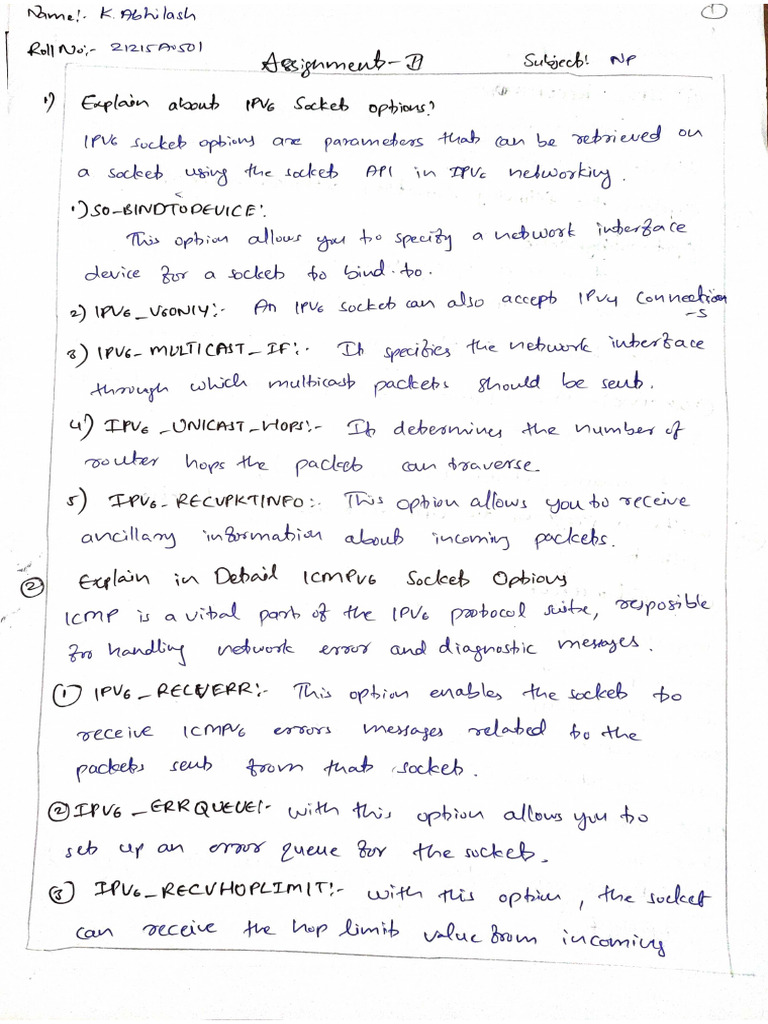 Name:- K. Abhilash
1
Roll No:- 21215A0501
Assignment-II
Subject: NP
1) Explain about IPV6 Socket options?
IPV6 socket options are parameters that can be retrieved on
a socket using the socket API in IPV6 networking.
1) SO-BINDTODEVICE:
This option allows you to specify a network interface
device for a socket to bind to.
2) IPV6_V6ONLY:- An IPV6 socket can also accept IPV4 connection
-s
3) IPV6-MULTICAST_IF:- It specifies the network interface
through which multicast packets should be sent.
4) IPV6_UNICAST_HOPS:- It determines the number of
router hops the packet can traverse.
5) IPV6-RECVPKTINFO:- This option allows you to receive
ancillary information about incoming packets.
2 Explain in Detail ICMPV6 Socket Options
ICMP is a vital part of the IPV6 protocol suite, resposible
for handling network error and diagnostic messages.
1 IPV6_RECVERR:- This option enables the socket to
receive ICMPV6 errors messages related to the
packets sent from that socket.
2 IPV6_ERRQUEUE:- with this option allows you to
set up an error queue for the socket.
3 IPV6_RECVHOPLIMIT:- with this option, the socket
can receive the hop limit value from incoming